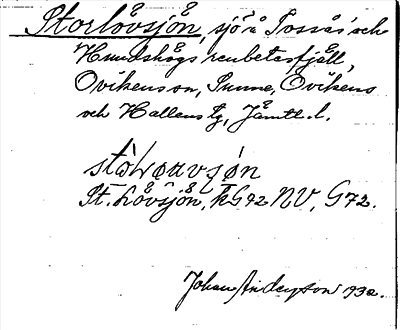 Storlövsjön, sjö i Tossås och
Hundshögs renbetesfjäll,
Ovikens sn, Sunne, Ovikens
och Hallens tg, Jämtl. l.
St. Lövsjön, kG72 NV, G72.
Johan Anderson 1932.